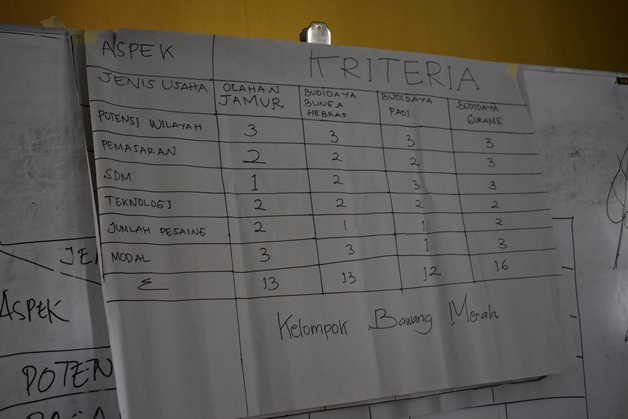 ASPEK KRITERIA
JENIS USAHA OLAHAN JAMUR BUDIDAYA BUNGA HEBRAS BUDIDAYA PADI BUDIDAYA GURAME
POTENSI WILAYAH 3 3 3 3
PEMASARAN 2 2 2 3
SDM 1 2 3 3
TEKNOLOGI 2 2 2 2
JUMLAH PESAING 2 1 1 2
MODAL 3 3 1 3
Σ 13 13 12 16
Kelompok Bawang Merah
JE
ASPEK
POTEN